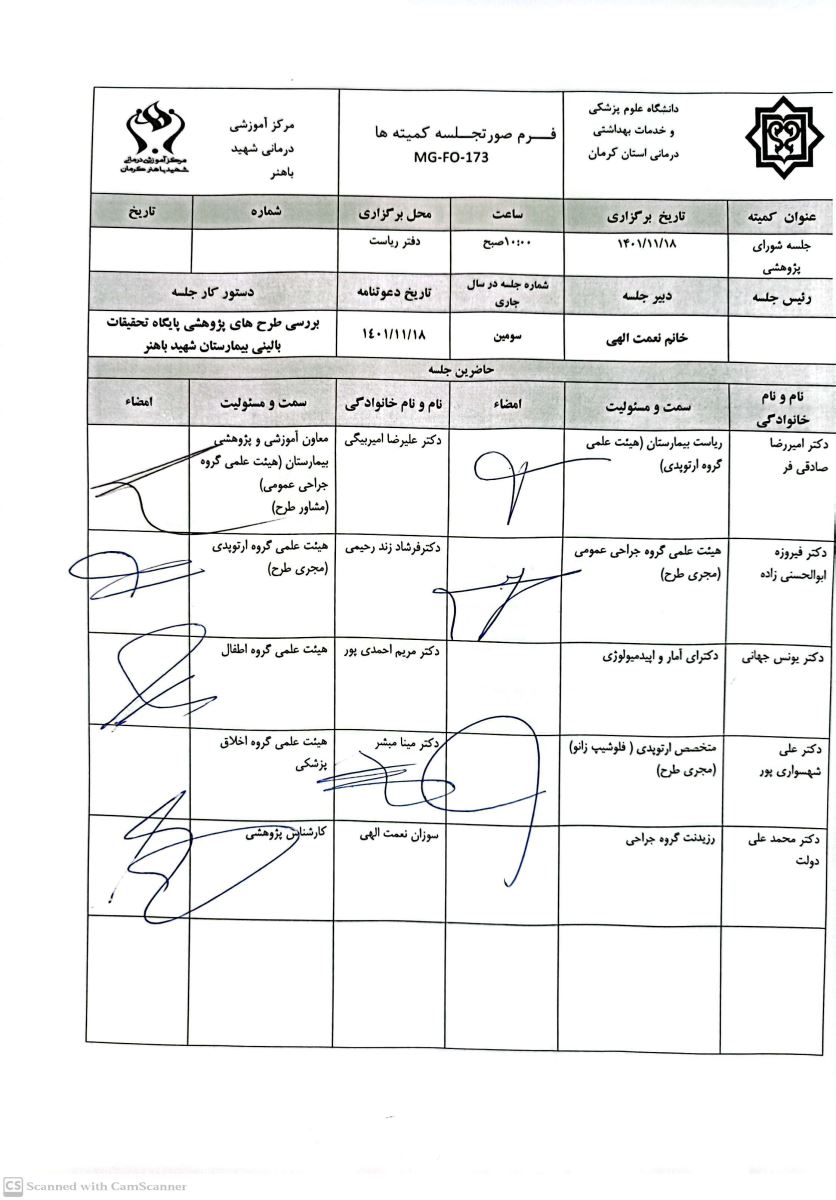 دانشگاه علوم پزشکی
و خدمات بهداشتی
درمانی استان کرمان
فـــرم صورتجـلـسه کمیته ها
MG-FO-173
مرکز آموزشی
درمانی شهید
باهنر
مرکز آموزشی درمانی
شهید باهنر کرمان
عنوان کمیته
تاریخ برگزاری
ساعت
محل برگزاری
شماره
تاریخ
جلسه شورای
پژوهشی
۱۴۰۱/۱۱/۱۸
۱۰:۰۰صبح
دفتر ریاست
رئیس جلسه
دبیر جلسه
شماره جلسه در سال
جاری
تاریخ دعوتنامه
دستور کار جلسه
خانم نعمت الهی
سومین
۱٤۰۱/۱۱/۱۸
بررسی طرح های پژوهشی پایگاه تحقیقات
بالینی بیمارستان شهید باهنر
حاضرین جلسه
نام و نام
خانوادگی
سمت و مسئولیت
امضاء
نام و نام خانوادگی
سمت و مسئولیت
امضاء
دکتر امیررضا
صادقی فر
ریاست بیمارستان (هیئت علمی
گروه ارتوپدی)
دکتر علیرضا امیربیگی
معاون آموزشی و پژوهشی
بیمارستان (هیئت علمی گروه
جراحی عمومی)
(مشاور طرح)
دکتر فیروزه
ابوالحسنی زاده
هیئت علمی گروه جراحی عمومی
(مجری طرح)
دکترفرشاد زند رحیمی
هیئت علمی گروه ارتوپدی
(مجری طرح)
دکتر یونس جهانی
دکترای آمار و اپیدمیولوژی
دکتر مریم احمدی پور
هیئت علمی گروه اطفال
دکتر علی
شهسواری پور
متخصص ارتوپدی ( فلوشیپ زانو)
(مجری طرح)
دکتر مینا مبشر
هیئت علمی گروه اخلاق
پزشکی
دکتر محمد علی
دولت
رزیدنت گروه جراحی
سوزان نعمت الهی
کارشناس پژوهشی
CS Scanned with CamScanner